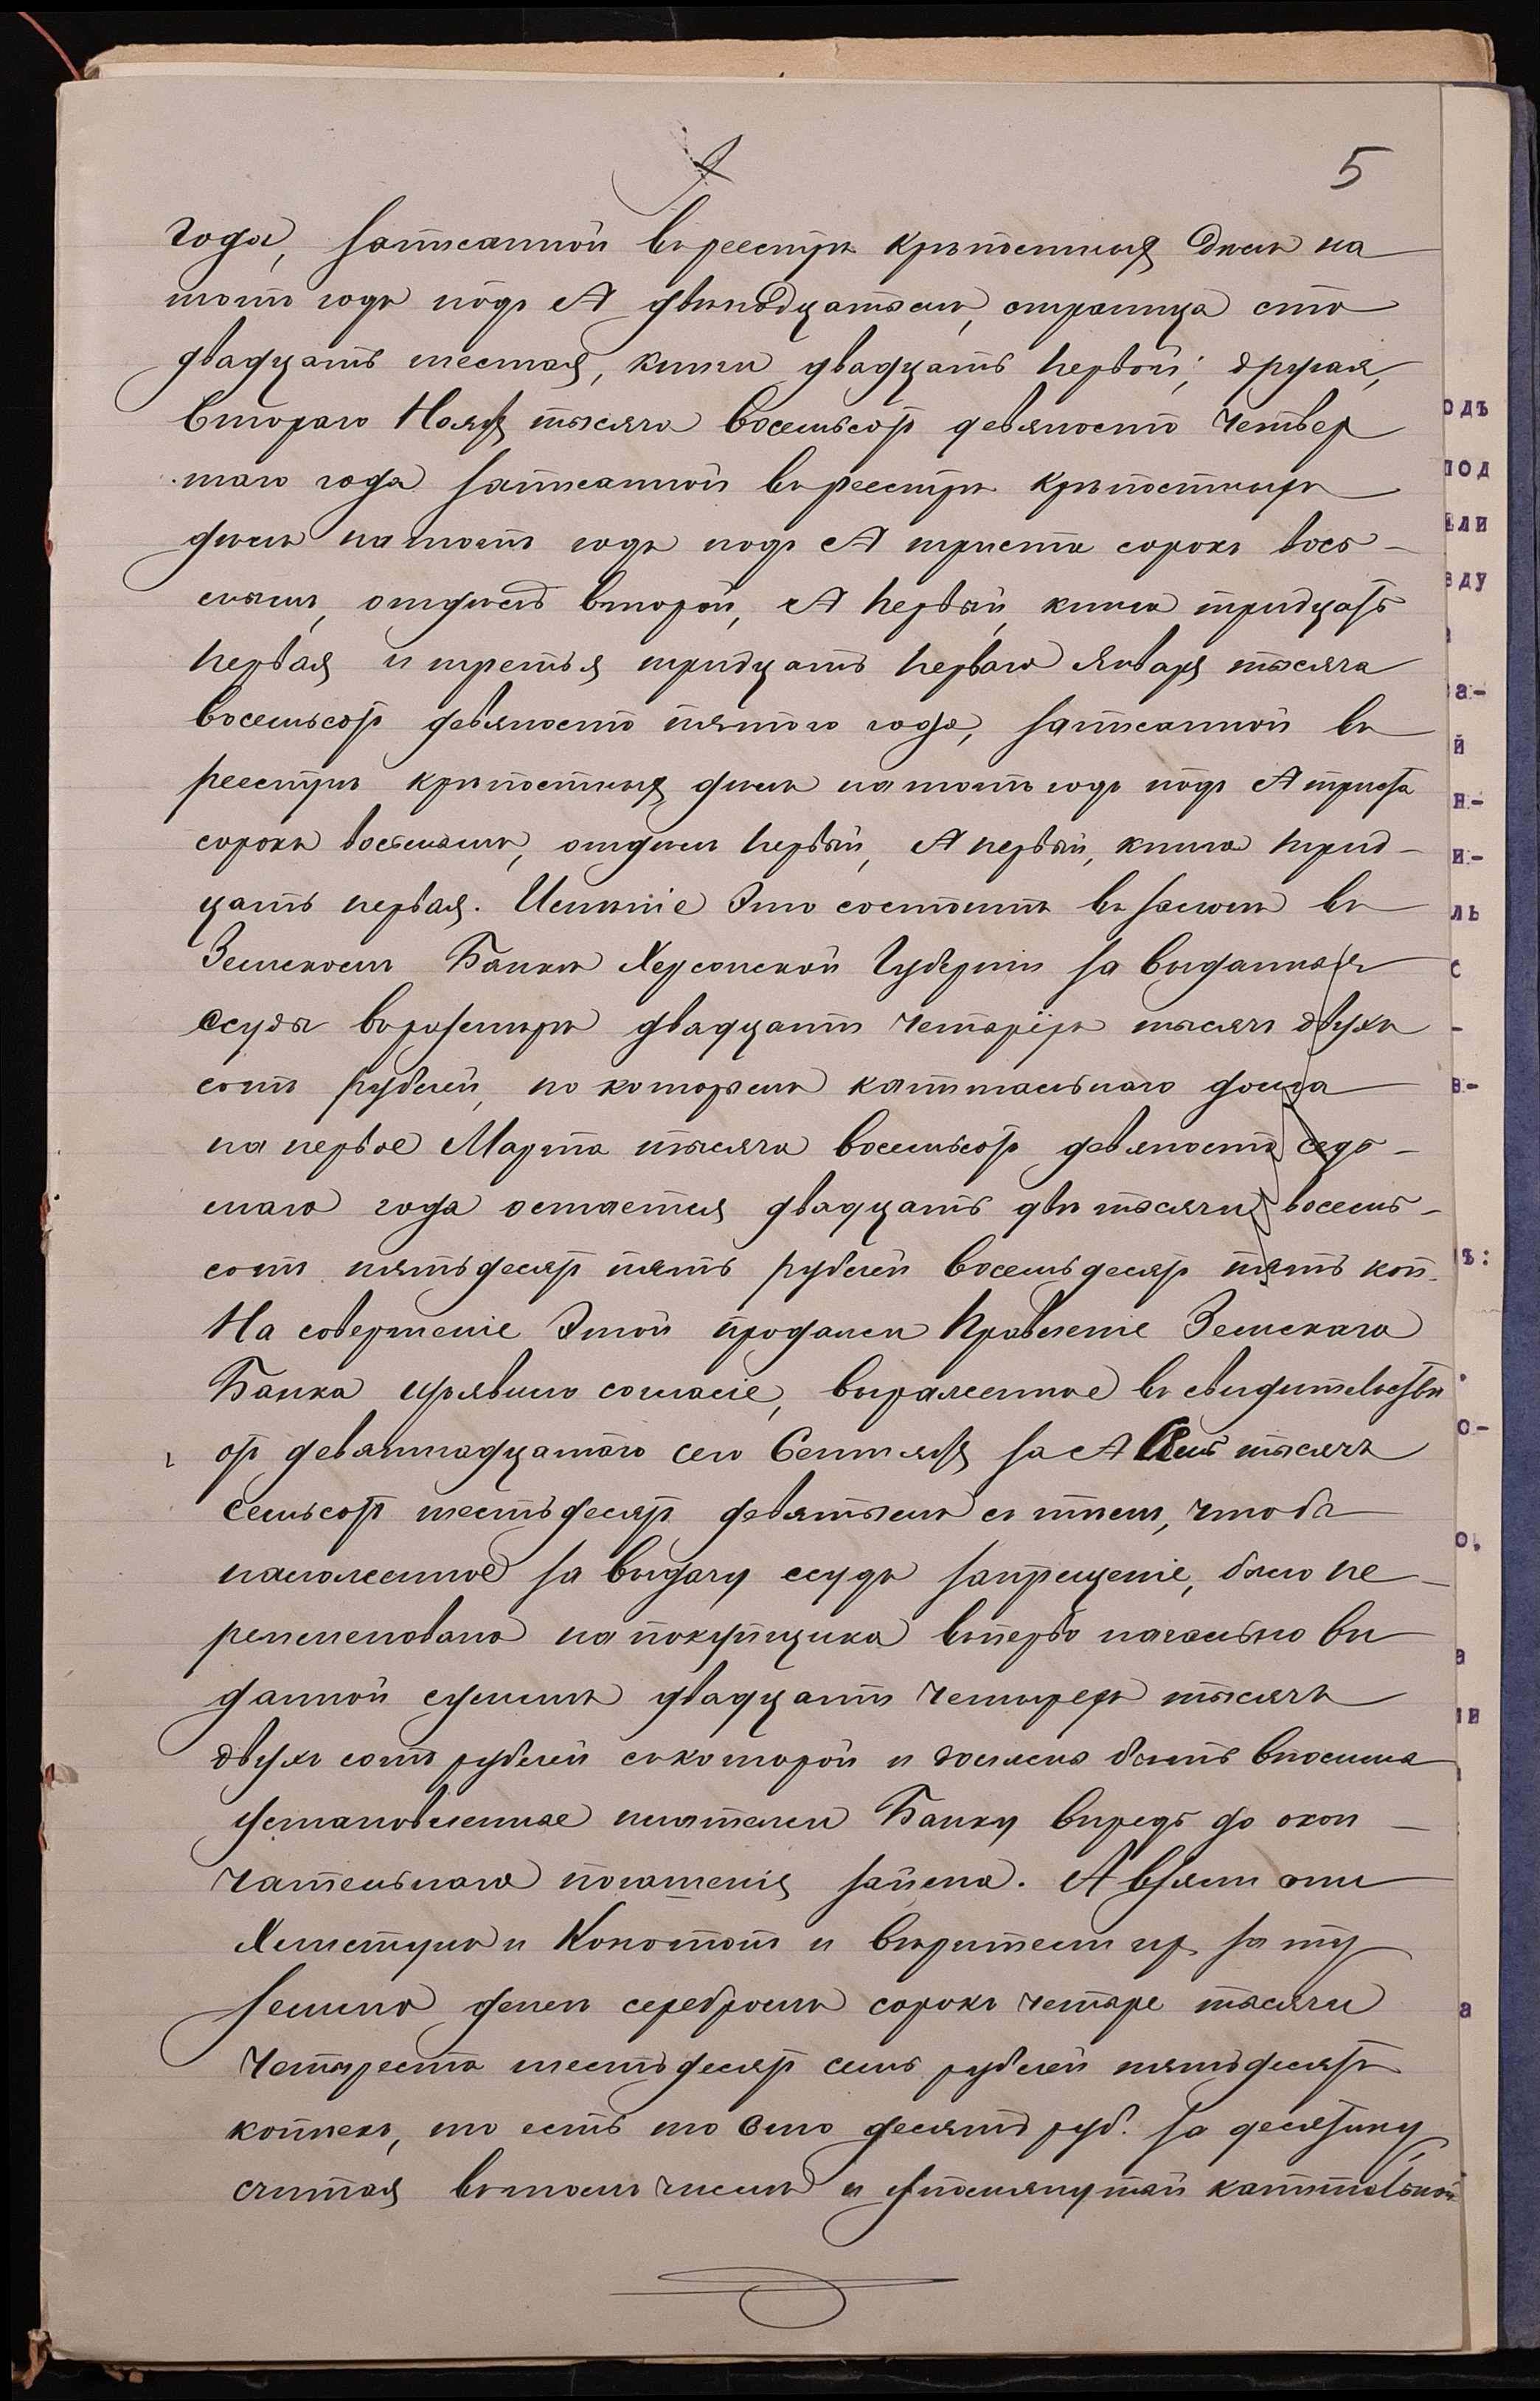 5
года, записанной въ реестръ крѣпостныхъ дѣлъ на
тотъ годъ подъ № двѣнадцатымъ, страница сто
двадцать шестая, книги двадцать первой; другая,
втораго Ноября тысяча восемьсотъ девяносто четвер
таго года записанной въ реестръ крѣпостныхъ
дѣлъ на тотъ годъ подъ № триста сорокъ вось-
мымъ, отдѣлъ второй, № первый, книга тридцать
первая и третья тридцать перваго Января тысяча
восемьсотъ девяносто пятого года, записанной въ
реестръ крѣпостныхъ дѣлъ на тотъ годъ подъ № триста
сорокъ восьмымъ, отдѣлъ первый, № первый, книга трид-
цать первая. Имѣніе это состоитъ въ залогѣ въ
Земскомъ Банкѣ Херсонской Губерніи за выданныя
ссуды въ размѣрѣ двадцати четырёхъ тысячъ двухъ
сотъ рублей, по которымъ капитальнаго долга
на первое Марта тысяча восемьсотъ девяносто седь-
маго года остается двадцать двѣ тысячи восемь-
сотъ пятьдесятъ пять рублей восемьдесятъ пять коп.
На совершеніе этой продажи Правленіе Земскаго
Банка изъявило согласіе, выраженное въ свидѣтельствѣ
отъ девятнадцатаго сего Сентября за № Семь тысячъ
семьсотъ шестьдесятъ девятымъ съ тѣмъ, чтобы
наложенное за выдачу ссудъ запрещеніе, было пе-
реименовано на покупщика въ перво начально вы
данной суммѣ двадцати четырехъ тысячъ
двухъ сотъ рублей съ которой и должны быть вносимы
установленные платежи Банку впредь до окон-
чательнаго погашенія займа. А взяли они
Хлистунъ и Конотопъ и вѣрители ихъ за ту
землю денегъ серебромъ сорокъ четыре тысячи
четыреста шестьдесятъ семь рублей пятьдесятъ
копѣекъ, то есть по сто десяти руб. за десятину
считая въ томъ числѣ и упомянутый капитальной
одъ
под
или
зду
а-
й
н-
и-
ль
с
-
в-
ъ:
о-
о.
а
ли
а